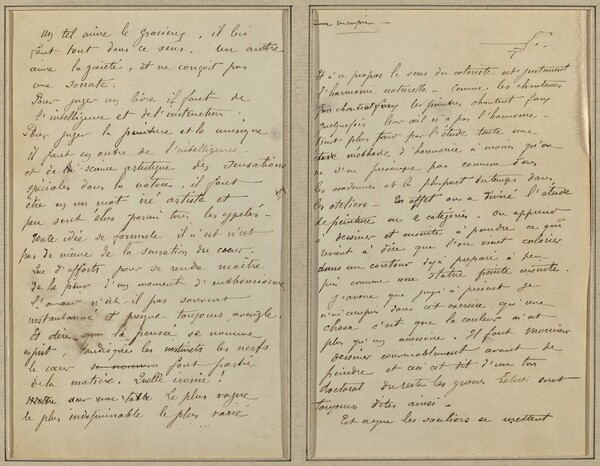 Un tel aime le gracieux, il lui
faut tout dans ce sens. Un autre
aime la gaieté, et ne conçoit pas
une Sonate.
Pour juger un livre il faut de
l'intelligence et de l'instruction.
Pour juger la peinture et la musique
il faut en outre de l'intelligence
et de la science artistique des sensations
spéciales dans la nature, il faut
être en un mot né artiste et
peu sont élus parmi tous les appelés -
Toute idée se formule il n'est n'est
pas de même de la sensation du cœur.
Que d'efforts pour se rendre maître
de la peur d'un moment d'enthousiasme
L'amour n'est il pas souvent
instantanné et presque toujours aveugle.
Et dire que la pensée se nomme
esprit, tandisque les instincts les nerfs
le cœur font partie
de la matière. Quelle ironie!
Le plus vague
le plus indéfinissable le plus varié
Et à ce propos le sens du coloriste est justement
l'harmonie naturelle - Comme les chanteurs
les peintres chantent faux
quelquefois leur œil n'a pas l'harmonie -
Vient plus tard par l'étude toute une
méthode d'harmonie à moins qu'on
ne s'en préoccupe pas comme dans
les académies et la plupart du temps dans
les ateliers - En effet on a divisé l'étude
de peinture en 2 catégories. On apprend
à dessiner et ensuite à peindre ce qui
revient à dire que l'on vient colorier
dans un contour déjà préparé à peu
près comme une statue peinte ensuite.
J'avoue que jusqu'à présent je
n'ai compris dans cet exercice qu'une
chose c'est que la couleur n'est
plus qu'un accessoire. Il faut Monsieur
dessiner convenablement avant de
peindre et ceci est dit d'un ton
doctoral du reste les grosses bêtises sont
toujours dites ainsi -
Est ce que les souliers se mettent